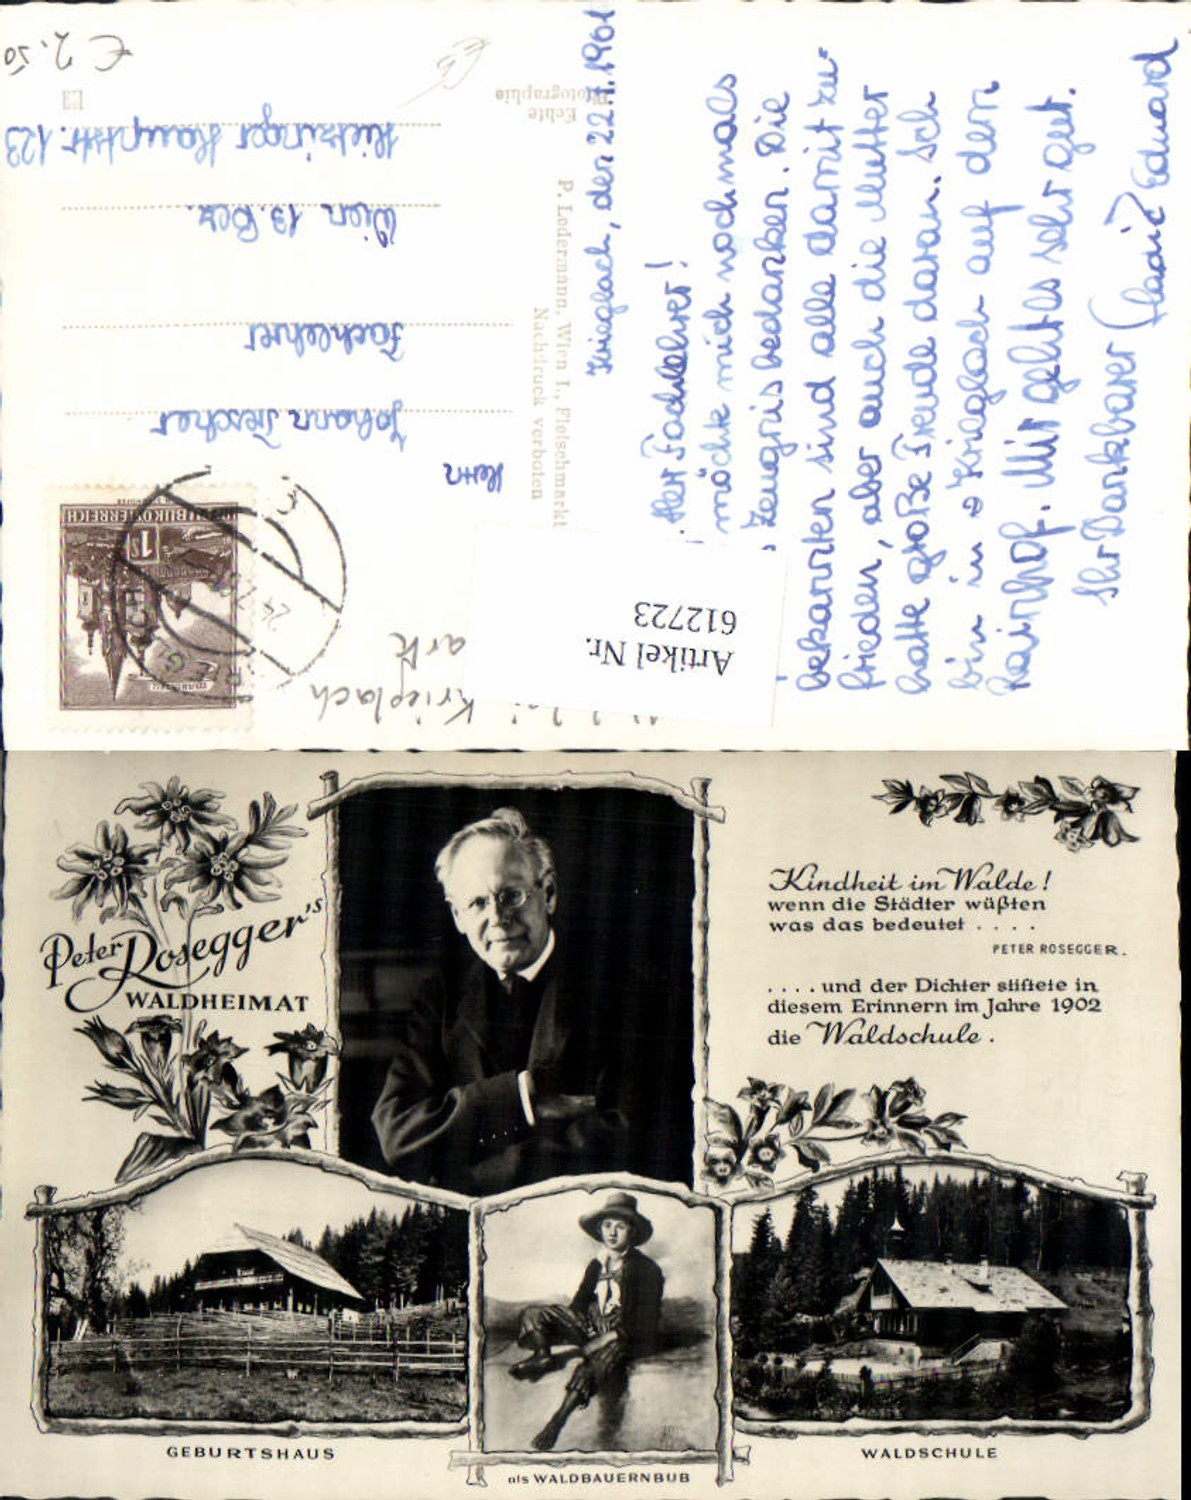 Krieglach, den 22.7.1961
Herr Fachlehrer!
möchte mich nochmals
Zeugnis bedanken. Die
bekannten sind alle damit zu-
frieden, aber auch die Mutter
hatte große Freude daran. Ich
bin in Krieglach auf den
Rainhof. Mir geht es sehr gut.
Ihr Dankbarer Eduard
Echte
Photographie
P. Ledermann, Wien I., Fleischmarkt
Nachdruck verboten
Herrn
Johann Trescher
Fachlehrer
Wien 13. Bez.
Hietzinger Hauptstr. 123
REPUBLIK ÖSTERREICH
1S
MARIAZELL
Krieglach
Artikel Nr.
612723
€ 2.50
Peter Rosegger's
WALDHEIMAT
Kindheit im Walde!
wenn die Städter wüßten
was das bedeutet ....
PETER ROSEGGER.
.... und der Dichter stiftete in
diesem Erinnern im Jahre 1902
die Waldschule.
GEBURTSHAUS
als WALDBAUERNBUB
WALDSCHULE